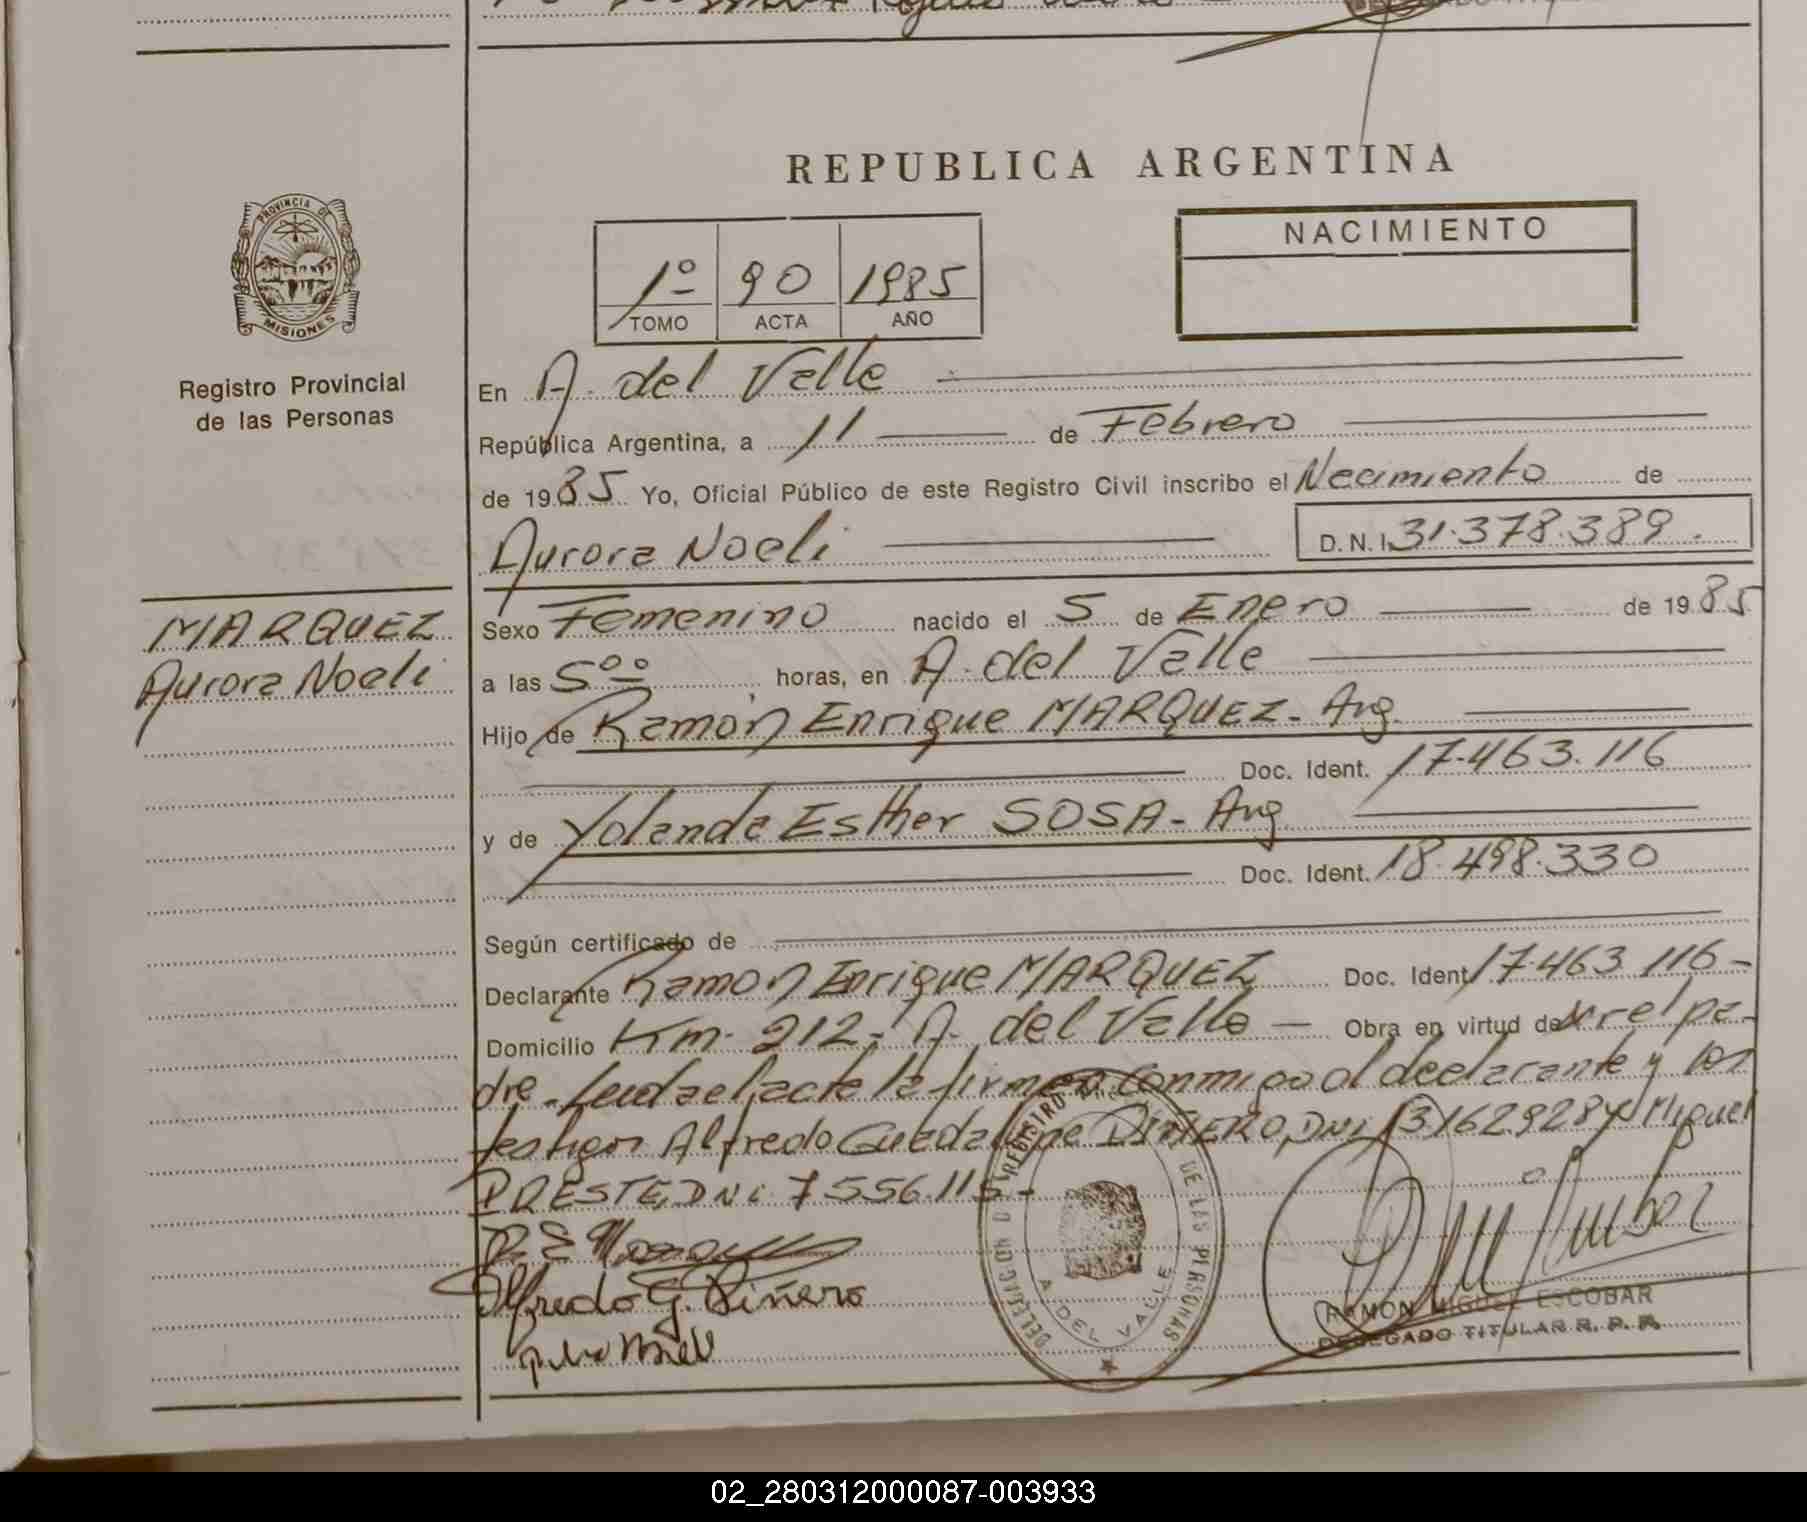 REPUBLICA ARGENTINA
PROVINCIA DE
MISIONES
Registro Provincial
de las Personas
1º 90 1985
TOMO ACTA AÑO
NACIMIENTO
En A. del Valle
República Argentina, a 11 de Febrero
de 1985 Yo, Oficial Público de este Registro Civil inscribo el Nacimiento de
Aurora Noeli D.N.I. 31.378.389.
MARQUEZ
Aurora Noeli
Sexo Femenino nacido el 5 de Enero de 1985
a las 5ºº horas, en A. del Valle
Hijo de Ramón Enrique MARQUEZ - Arg.
Doc. Ident. 17.463.116
y de Yolanda Esther SOSA - Arg
Doc. Ident. 18.498.330
Según certificado de
Declarante Ramon Enrique MARQUEZ Doc. Ident. 17.463.116 -
Domicilio Km. 212 - A. del Valle - Obra en virtud de ser el pa-
dre - Leida el acta la firman conmigo el declarante y los
testigos Alfredo DNI 13162928 y Miguel
PRESTE, DNI 7556115 -
Alfredo G. Piñero
DELEGACION REGISTRO DE LAS PERSONAS
A. DEL VALLE
RAMON MIGUEL ESCOBAR
DELEGADO TITULAR R. P. P.
02_280312000087-003933